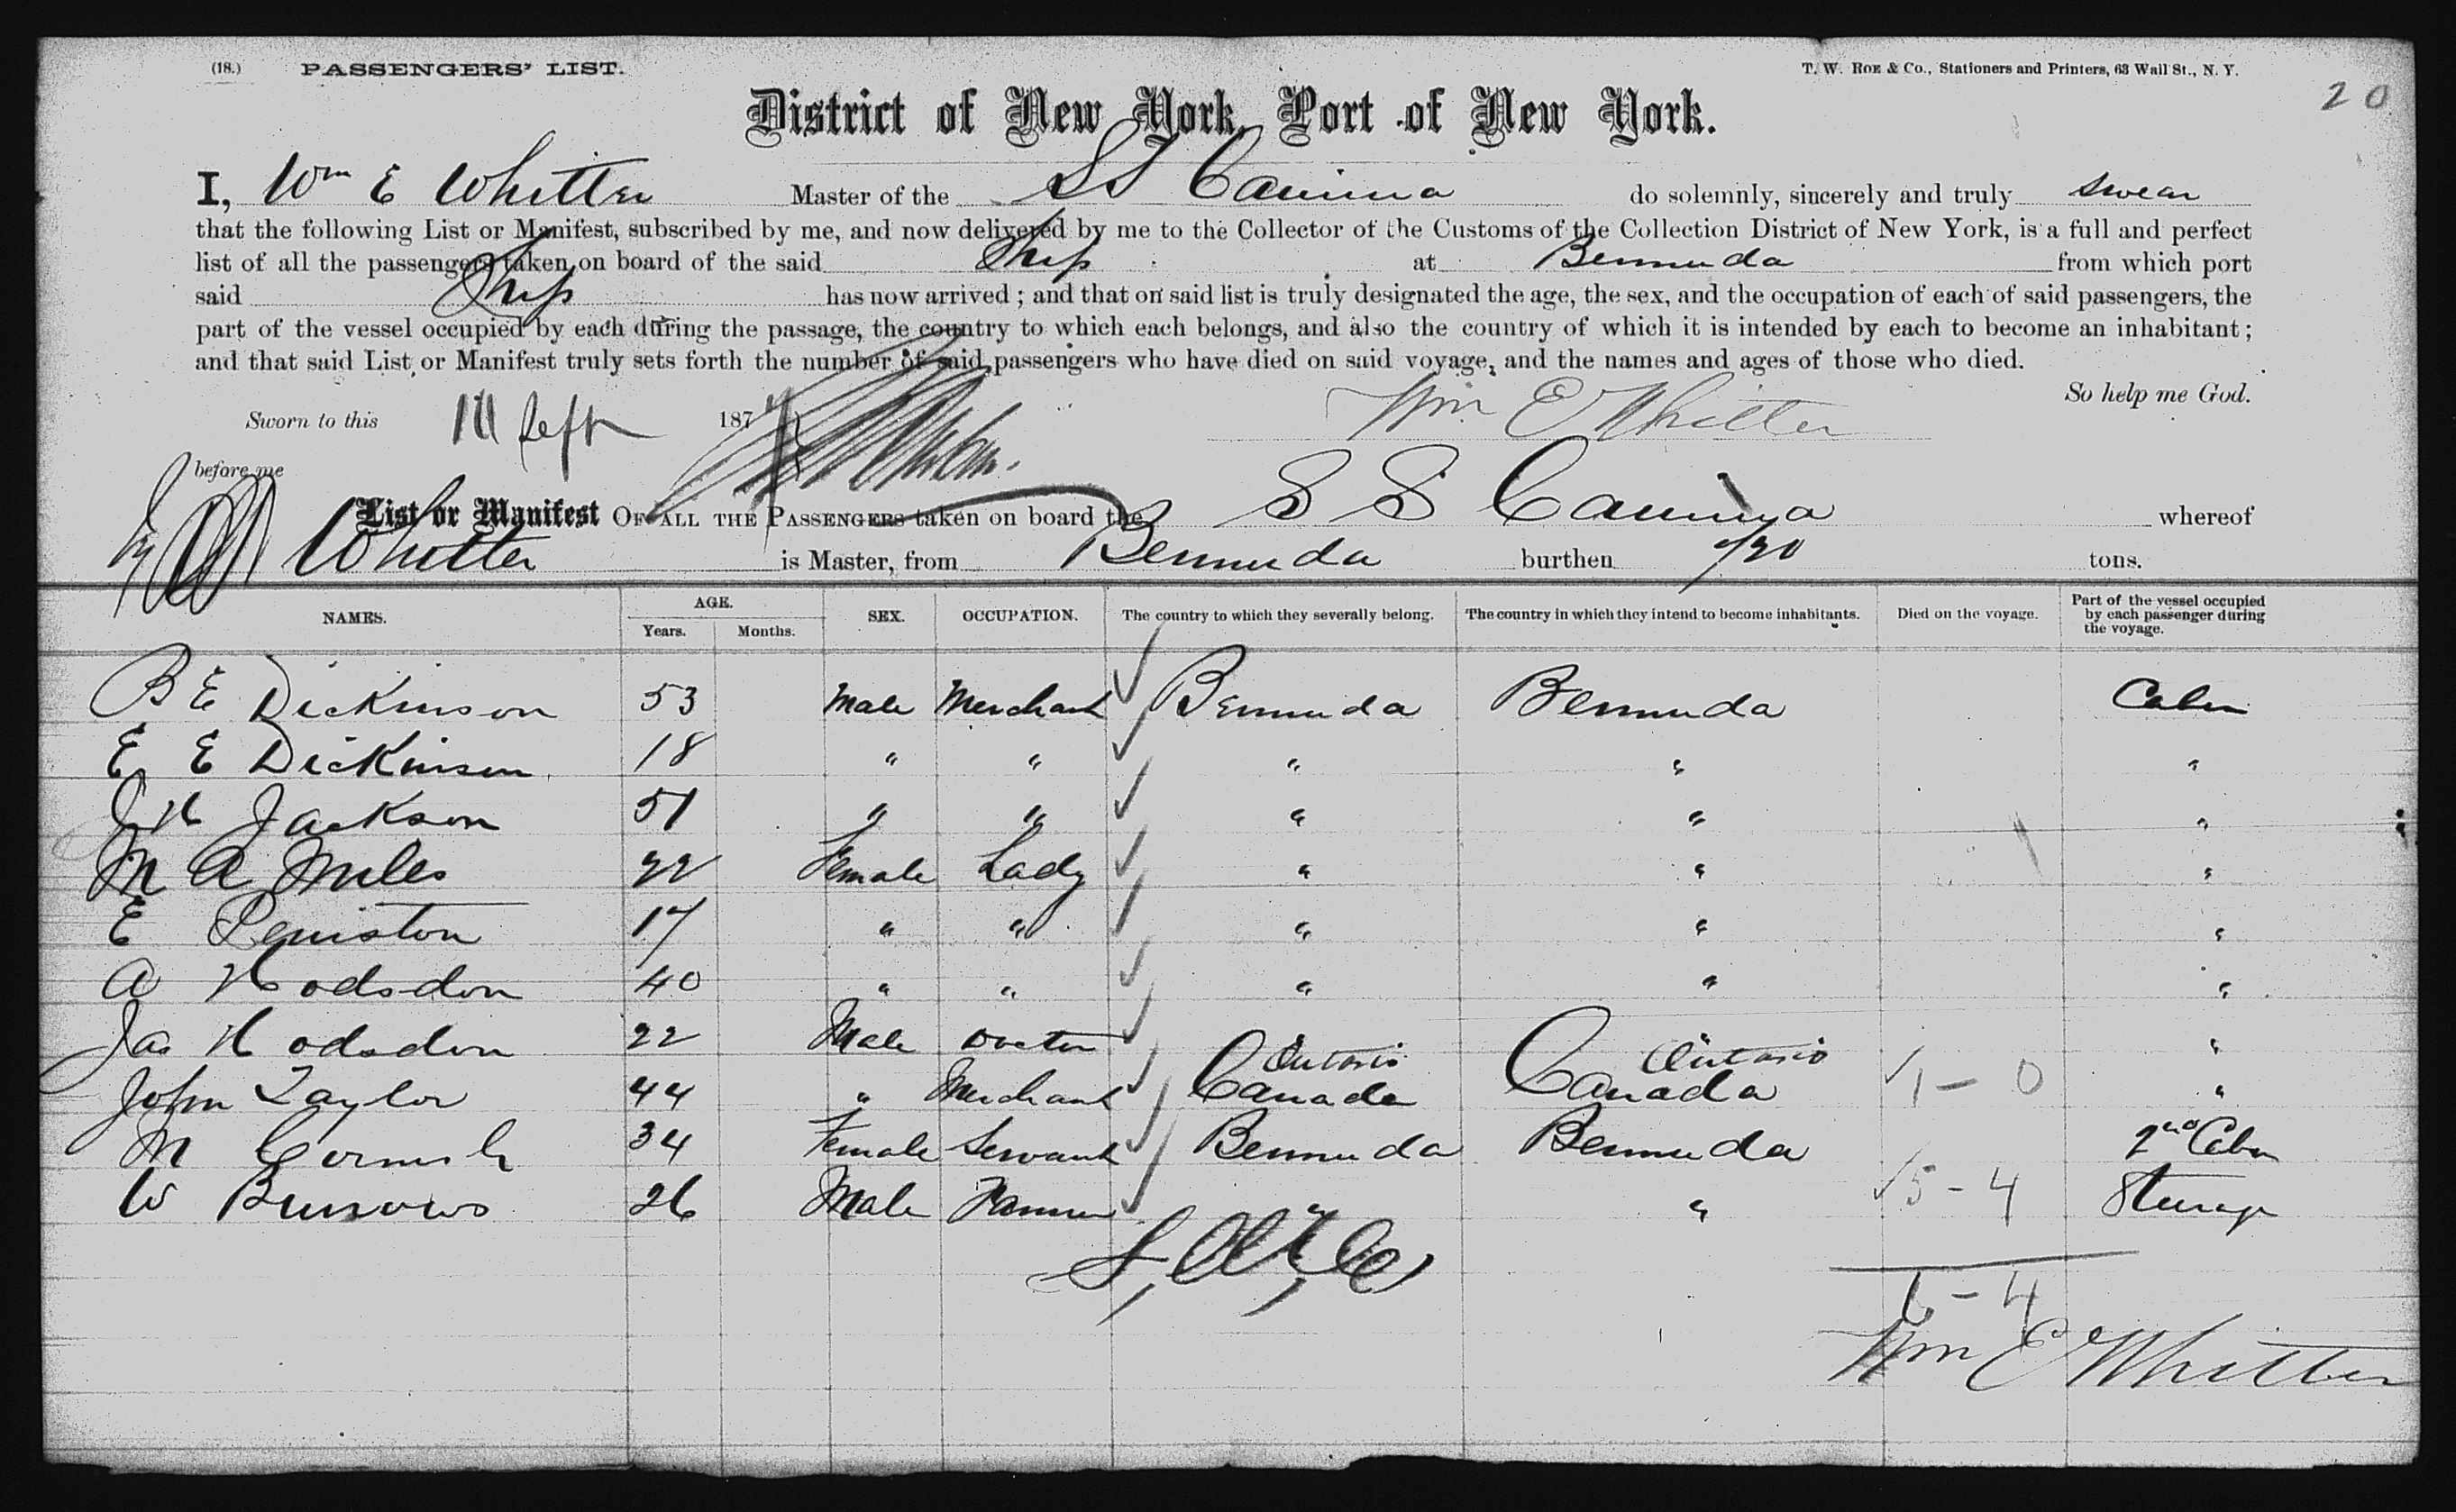 (18.) PASSENGERS' LIST.
T. W. Roe & Co., Stationers and Printers, 63 Wall St., N. Y.
20
District of New York, Port of New York.
I, Wm E Whitter Master of the SS Canima do solemnly, sincerely and truly swear
that the following List or Manifest, subscribed by me, and now delivered by me to the Collector of the Customs of the Collection District of New York, is a full and perfect
list of all the passengers taken on board of the said Ship at Bermuda from which port
said Ship has now arrived ; and that on said list is truly designated the age, the sex, and the occupation of each of said passengers, the
part of the vessel occupied by each during the passage, the country to which each belongs, and also the country of which it is intended by each to become an inhabitant ;
and that said List or Manifest truly sets forth the number of said passengers who have died on said voyage, and the names and ages of those who died.
So help me God.
Sworn to this Sept 187
Wm E Whitter
before me
List or Manifest OF ALL THE PASSENGERS taken on board the SS Canima whereof
Whitter is Master, from Bermuda burthen tons.
NAMES. AGE. Years. Months. SEX. OCCUPATION. The country to which they severally belong. The country in which they intend to become inhabitants. Died on the voyage. Part of the vessel occupied by each passenger during the voyage.
B E Dickinson 53 Male Merchant Bermuda Bermuda Cabin
E E Dickinson 18 " " " " "
J H Jackson 51 " " " " "
M A Miles 22 Female Lady " " "
E Peniston 17 " " " " "
A Hodsdon 40 " " " " "
Jas Hodsdon 22 Male Doctor "
John Taylor 44 " Merchant Ontario Canada Ontario Canada 1 - 0 "
M Cornish 34 Female Servant Bermuda Bermuda 2nd Cabin
W Burrows 26 Male Farmer " " 5 - 4 Steerage
6 - 4
Wm E Whitter